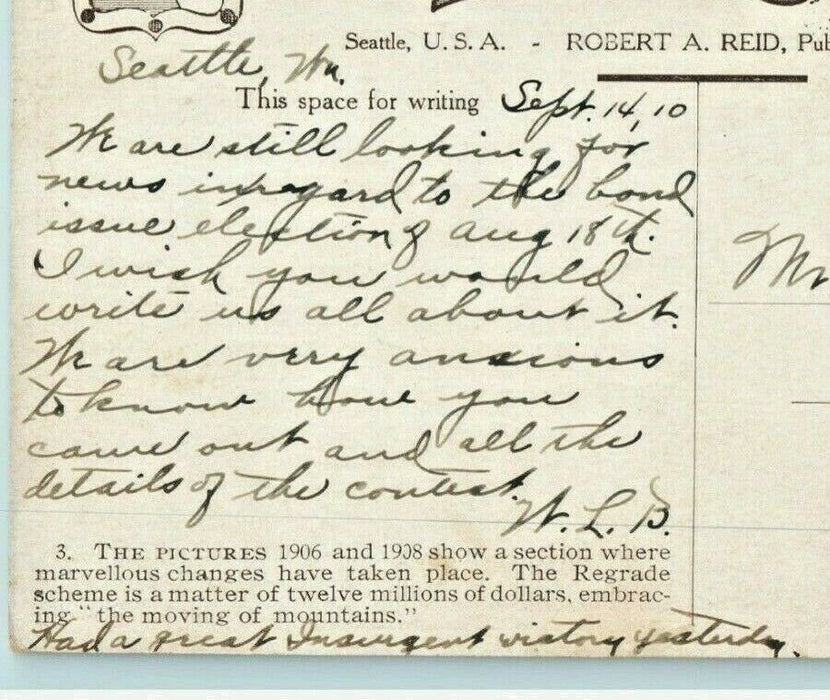 Seattle, U.S.A. - ROBERT A. REID, Pub
Seattle, Wn.
This space for writing Sept. 14, 10
We are still looking for
news in regard to the bond
issue election of Aug 18th.
I wish you would
write us all about it.
We are very anxious
to know how you
came out and all the
details of the contest.
W. L. B.
Mr
3. THE PICTURES 1906 and 1908 show a section where
marvellous changes have taken place. The Regrade
scheme is a matter of twelve millions of dollars, embrac-
ing "the moving of mountains."
Had a great Insurgent victory yesterday.